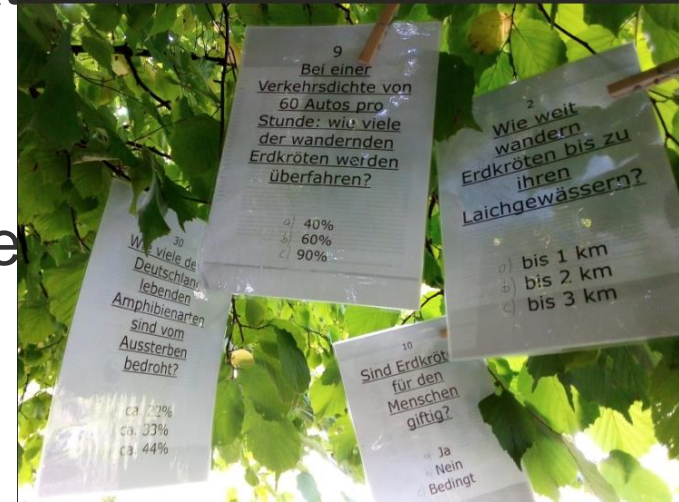 9
Bei einer
Verkehrsdichte von
60 Autos pro
Stunde: wie viele
der wandernden
Erdkröten werden
überfahren?
a) 40%
b) 60%
c) 90%
2
Wie weit
wandern
Erdkröten bis zu
ihren
Laichgewässern?
a) bis 1 km
b) bis 2 km
c) bis 3 km
30
Wie viele de
Deutschlan
lebenden
Amphibienarten
sind vom
Aussterben
bedroht?
ca. 22%
ca. 33%
ca. 44%
10
Sind Erdkröt
für den
Menschen
giftig?
Ja
Nein
Bedingt
e